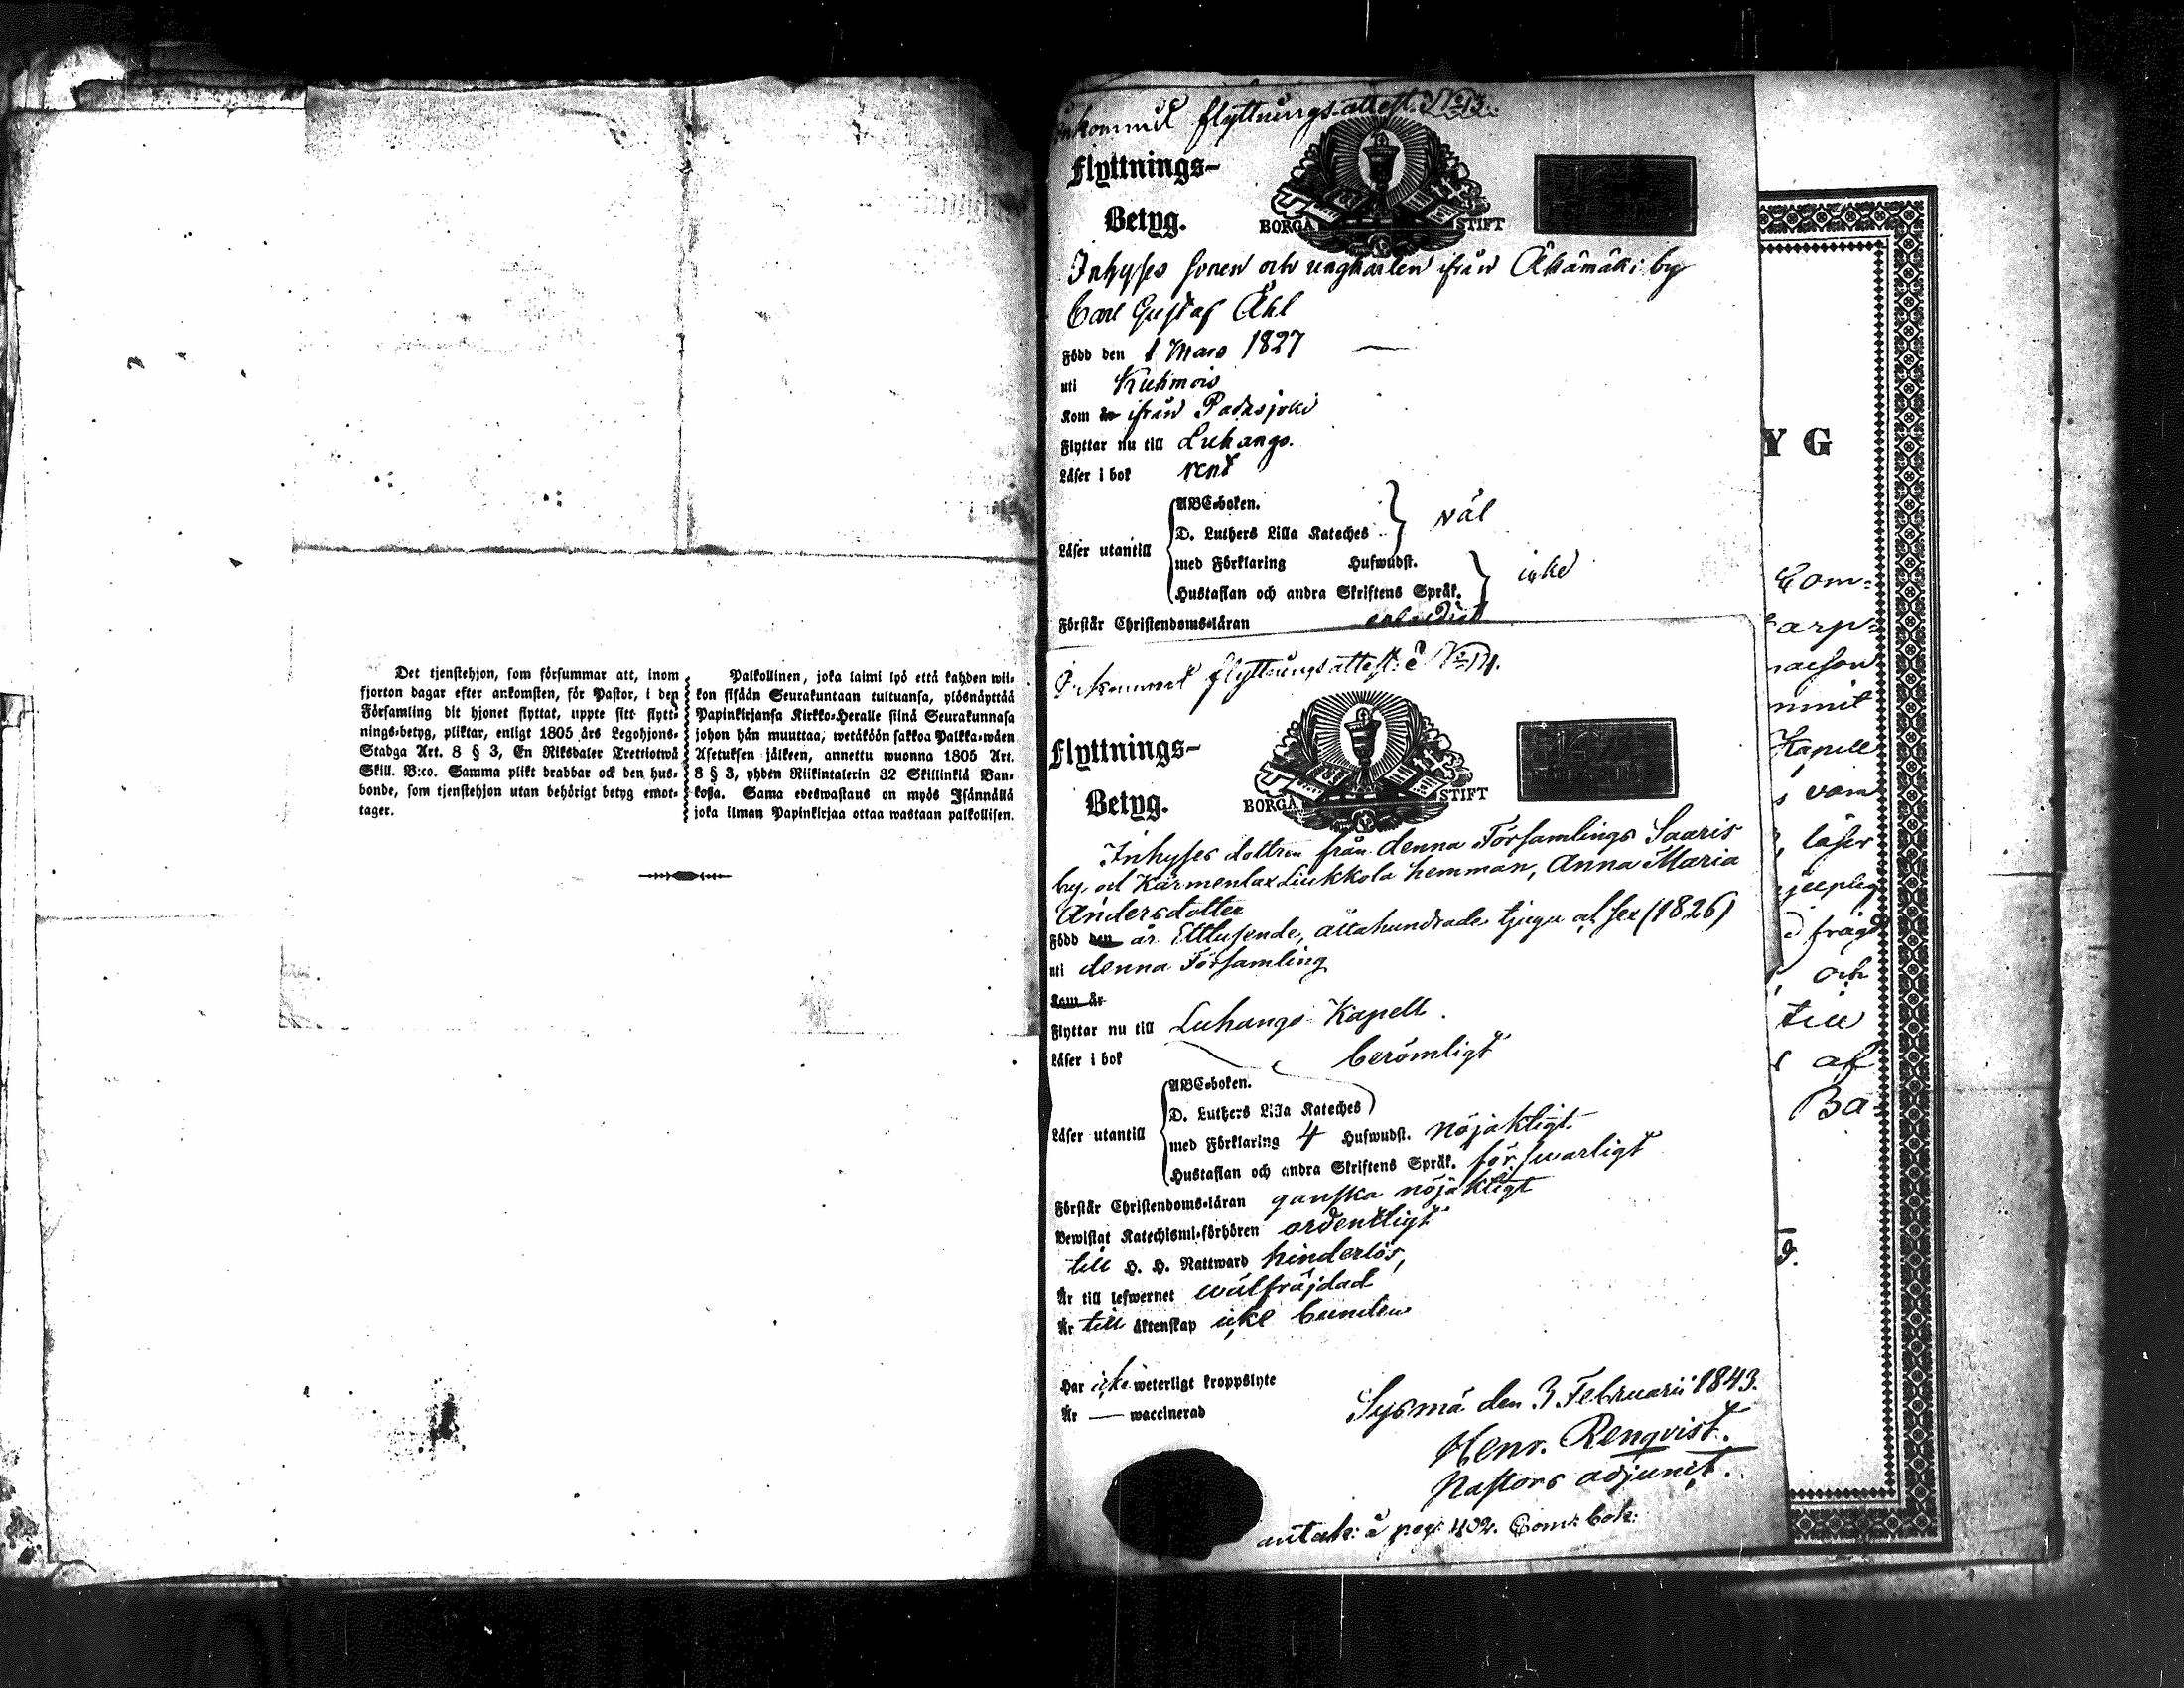 Det tjenstehjon, som försummar att, inom
fjorton dagar efter ankomsten, för Pastor, i den
Församling dit hjonet flyttat, uppte sitt flytt-
nings-betyg, pliktar, enligt 1805 års Legohjons-
Stadga Art. 8 § 3, En Riksdaler Trettiotwå
Skill. B:co. Samma plikt drabbar ock den hus-
bonde, som tjenstehjon utan behörigt betyg emot-
tager.
Palkollinen, joka laimi lyö että kahden wii-
kon sisään Seurakuntaan tultuansa, ylösnäyttää
Papinkirjansa Kirkko-Heralle siinä Seurakunnasa
johon hän muuttaa, wetäköön sakkoa Palkka-wäen
Asetuksen jälkeen, annettu wuonna 1805 Art.
8 § 3, yhden Riikintalerin 32 Skillinkiä Ban-
kosa. Sama edeswastaus on myös Isännällä
joka ilman Papinkirjaa ottaa wastaan palkollisen.
Inkommit flyttningsattest. N:o 13.
Flyttnings-
Betyg.
BORGÅ STIFT
Inhyses sonen och ungkarlen ifrån by
Carl Gustaf Åhl
Född den 1 Mars 1827
uti Kuhmois
Kom år ifrån Padasjoki
Flyttar nu till Luhango.
Läser i bok rent
Läser utantill
ABC-boken.
D. Luthers Lilla Kateches
med Förklaring Hufwudst.
Hustaflan och andra Skriftens Språk.
wäl
icke
Förstår Christendoms-läran
Inkommit flyttningsattest: å N:o 14.
Flyttnings-
Betyg.
BORGÅ STIFT
Inhyses dottren från denna Församlings Saaris
by och Kärmenlax Liukkola hemman, Anna Maria
Andersdotter
Född den år Ettusende, åttahundrade tjugu at sex (1826)
uti denna Församling
Kom år
Flyttar nu till Luhango Kapell.
Läser i bok berömligt
Läser utantill
ABC-boken.
D. Luthers Lilla Kateches
med Förklaring 4 Hufwudst. nöjaktigt
Hustaflan och andra Skriftens Språk. förswarligt
Förstår Christendoms-läran ganska nöjaktigt
Bewistat Katechismi-förhören ordentligt
till H. H. Nattward hinderlös,
Är till lefwernet wälfräjdad
Är till äktenskap icke bunden
Har icke weterligt kroppslyte
Är — waccinerad
Sysmä den 3 Februarii 1843.
Henr. Renqvist.
Pastors adjunct.
antek: å pag: 402. Com: bok:
YG
Com=
Kapell
läser
och
till
af
Ba=